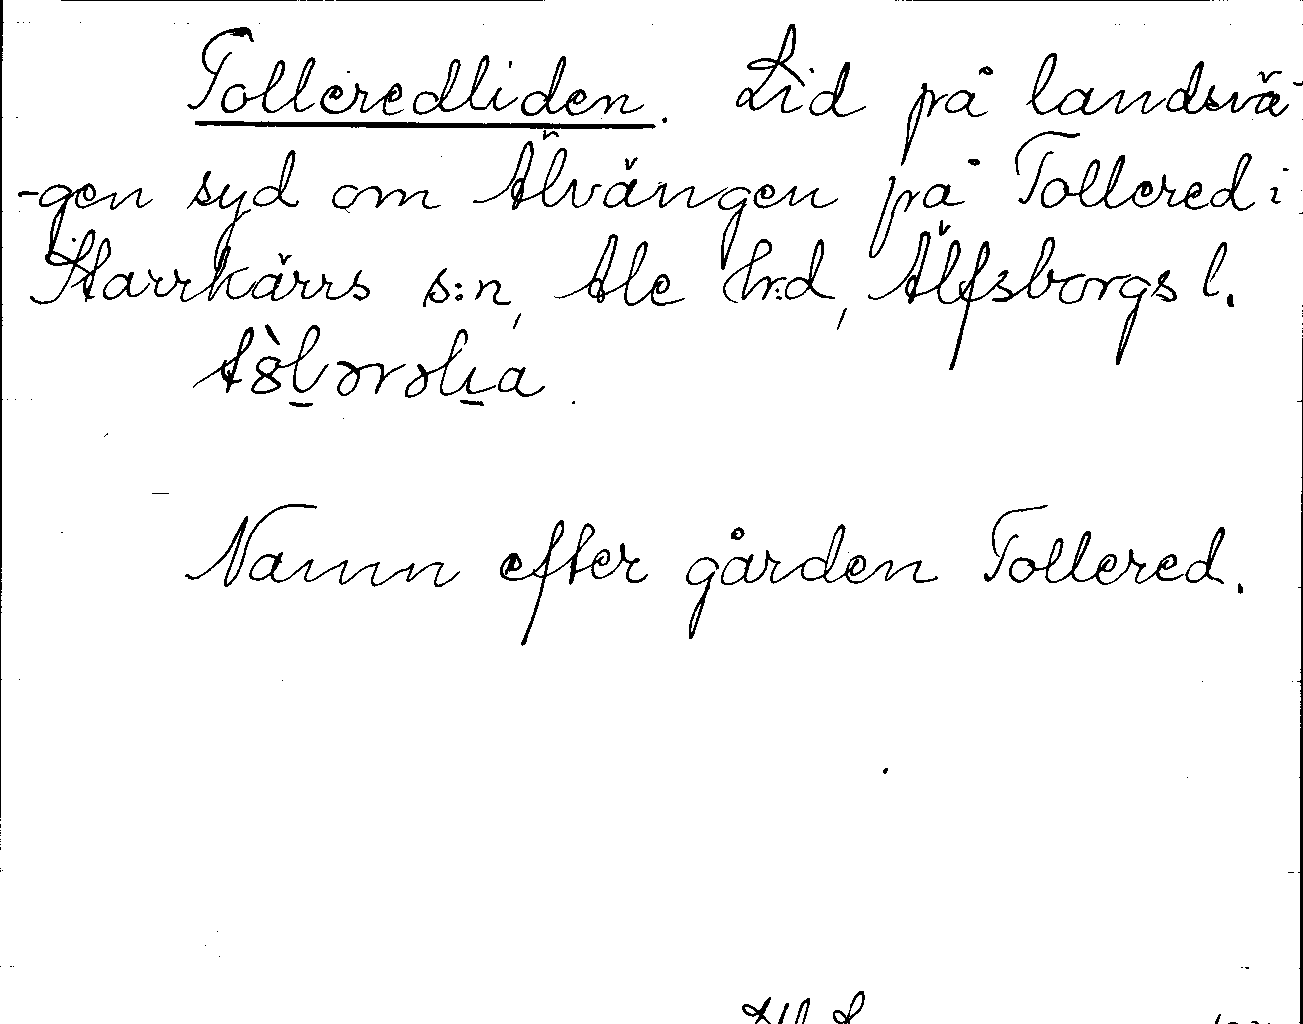 Tolleredliden. Lid på landsvä-
-gen syd om Älvängen på Tollered i
Starrkärrs s:n, Ale hrd, Älfsborgs l.
Namn efter gården Tollered.